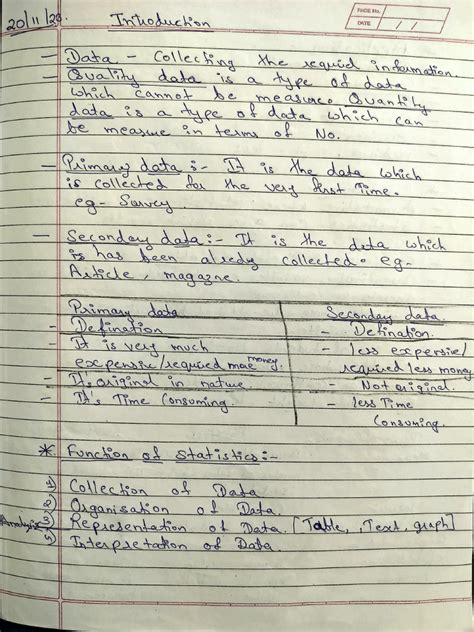 PAGE No.
DATE / /
20/11/20.
Introduction
- Data - Collecting the requid information.
- Quality data is a type of data
which cannot be measure. Quantity
data is a type of data which can
be measure in terms of No.
- Primary data :- It is the data which
is collected for the very first Time.
eg- Survey
- Secondary data :- It is the data which
has been already collected. eg-
Article, magazne.
Primary data Secondary data
- Defination - Defination.
- It is very much - less expensive/
expensive/required more money. required less money
- It's original in nature - Not original.
- It's Time Consuming. - less Time
Consuming.
* Function of Statistics :-
1) Collection of Data
2) Organisation of Data
Analysis 3) Representation of Data. [Table, Text, graph]
4) Interpretation of Data.